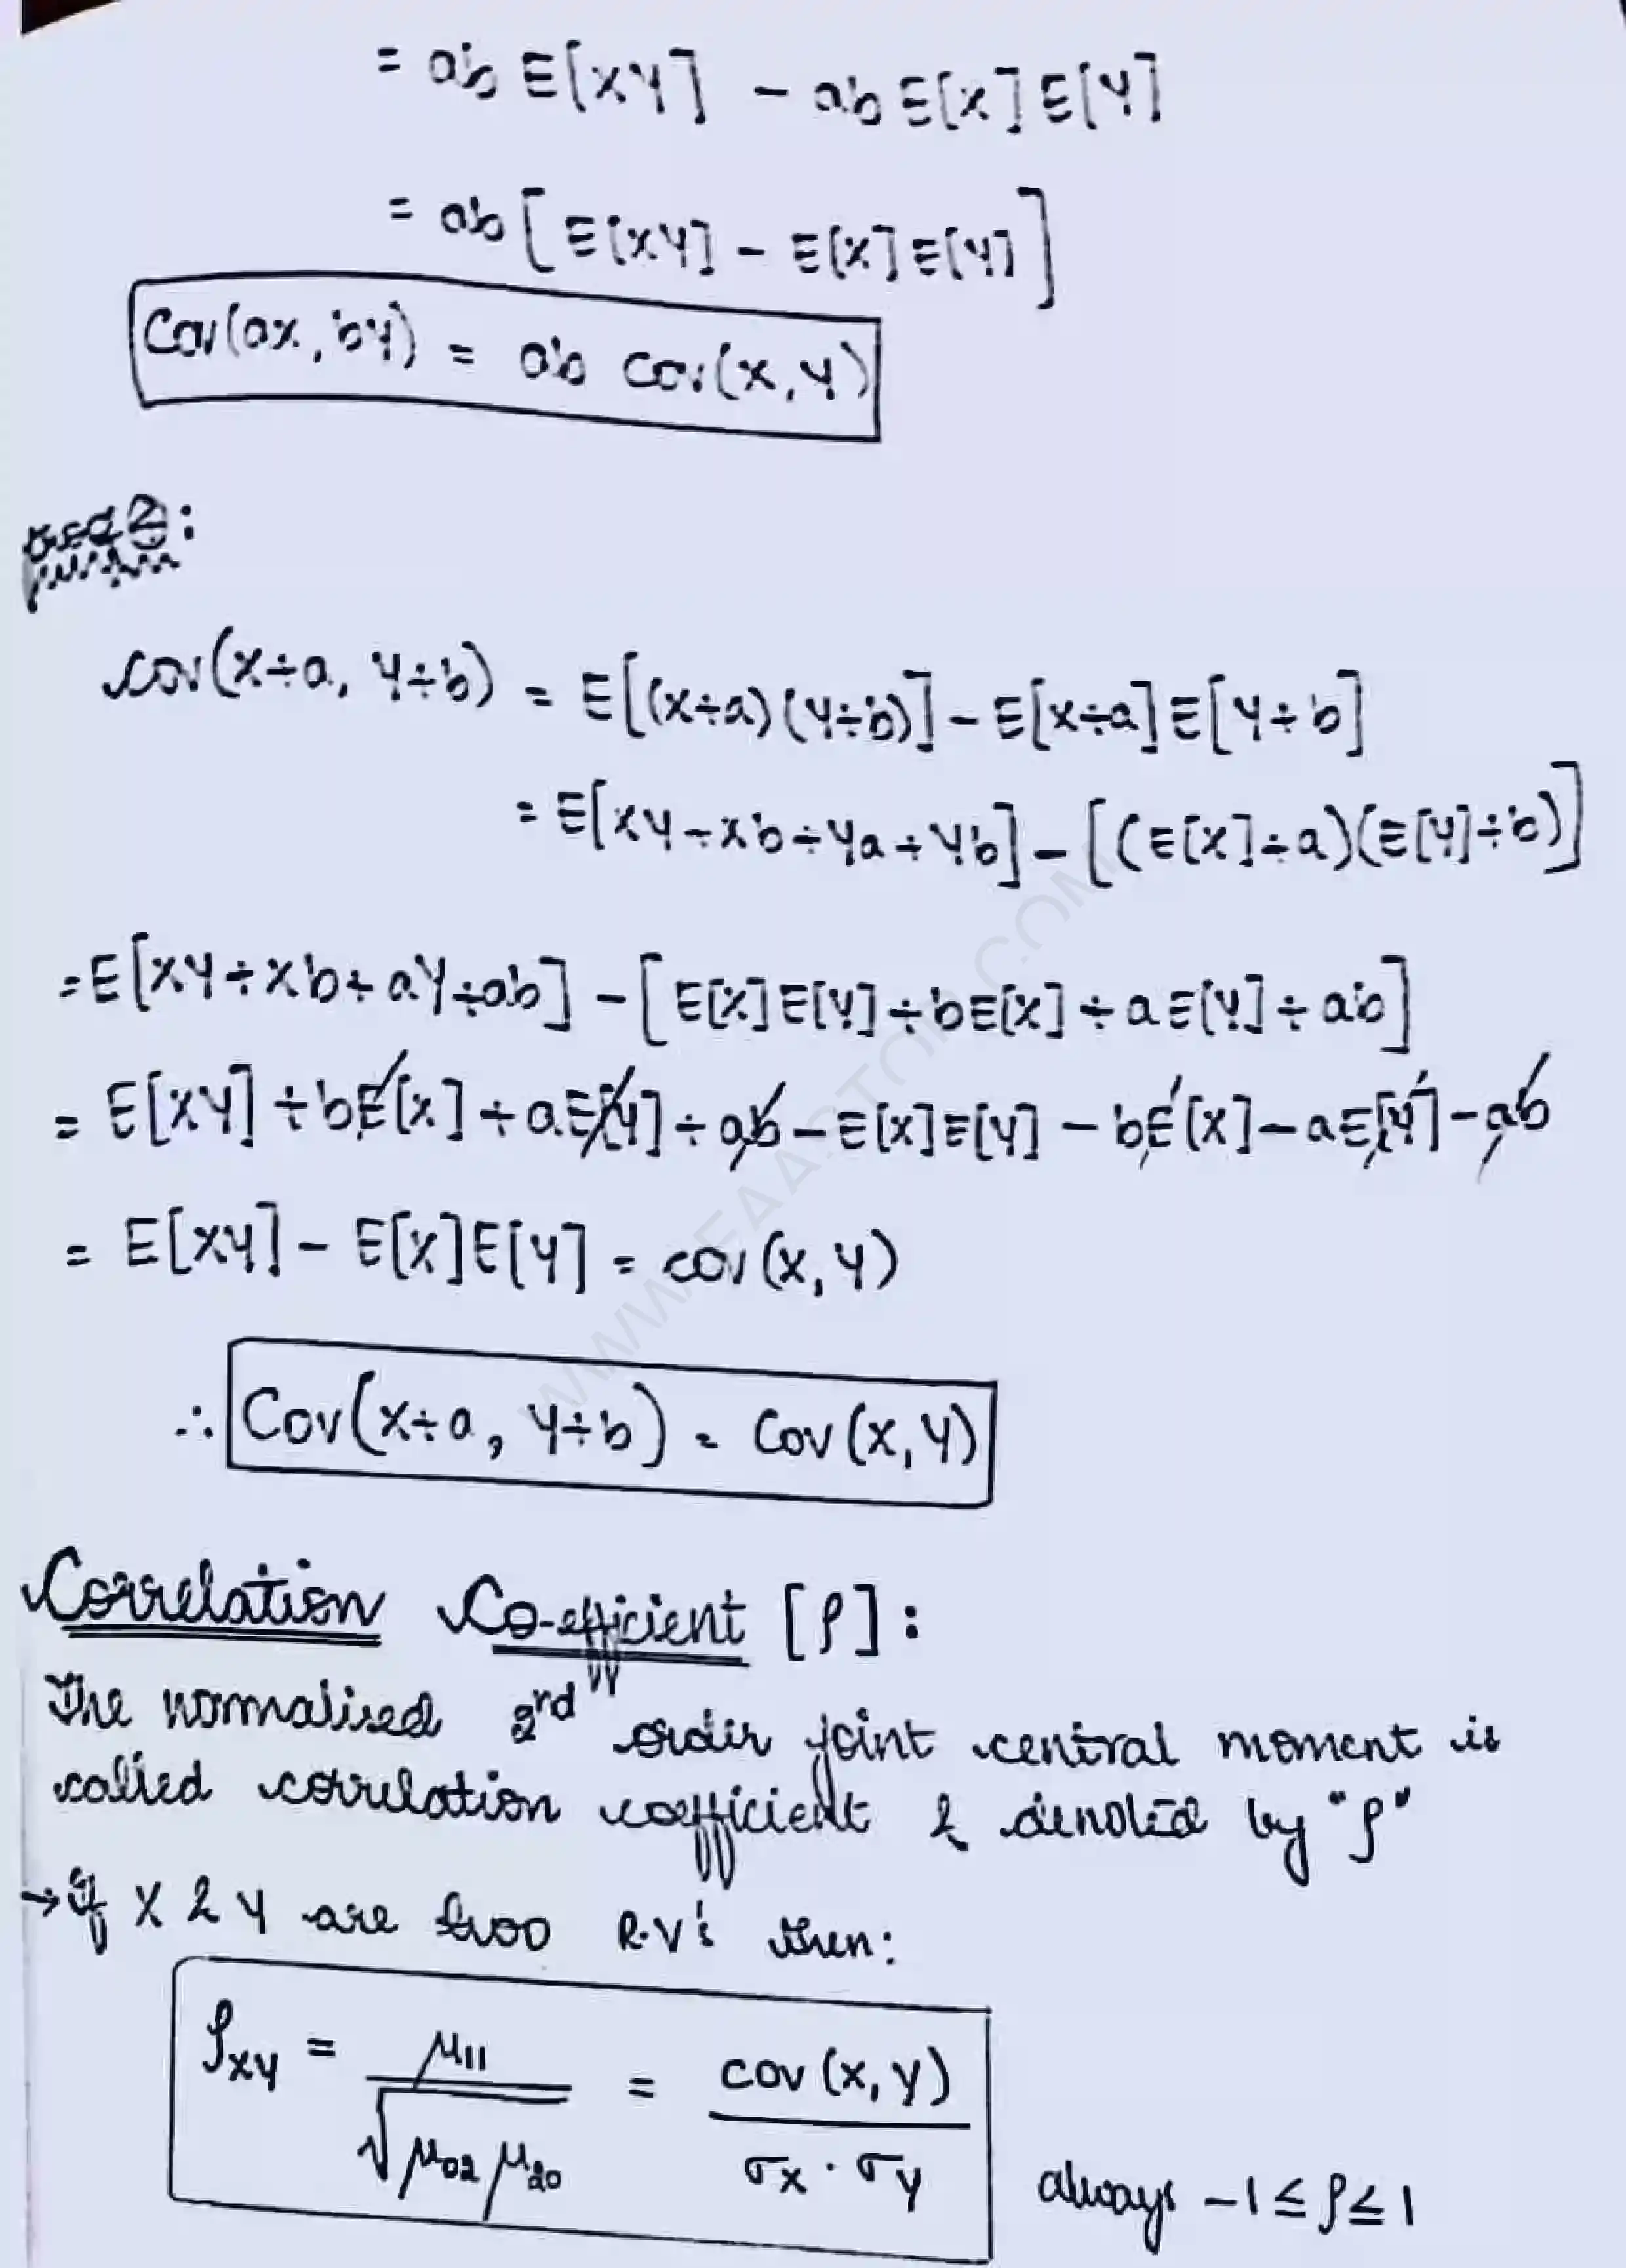 = ab E[XY] - ab E[X] E[Y]
= ab [E[XY] - E[X] E[Y]]
Cov(ax, by) = ab cov(x, y)
cov(x+a, y+b) = E[(x+a)(y+b)] - E[x+a] E[y+b]
= E[xy + xb + ya + yb] - [(E[x]+a)(E[y]+b)]
= E[xy + xb + ay + ab] - [E[x]E[y] + bE[x] + aE[y] + ab]
= E[xy] + bE[x] + aE[y] + ab - E[x]E[y] - bE[x] - aE[y] - ab
= E[xy] - E[x]E[y] = cov(x, y)
∴ Cov(x+a, y+b) = Cov(x, y)
Correlation Co-efficient [ρ]:
The normalised 2rd order joint central moment is
called correlation coefficient & denoted by "ρ"
→ if X & Y are two R.V's then:
ρxy = μ11 / √μ02 μ20 = cov(x, y) / σx · σy always -1 ≤ ρ ≤ 1